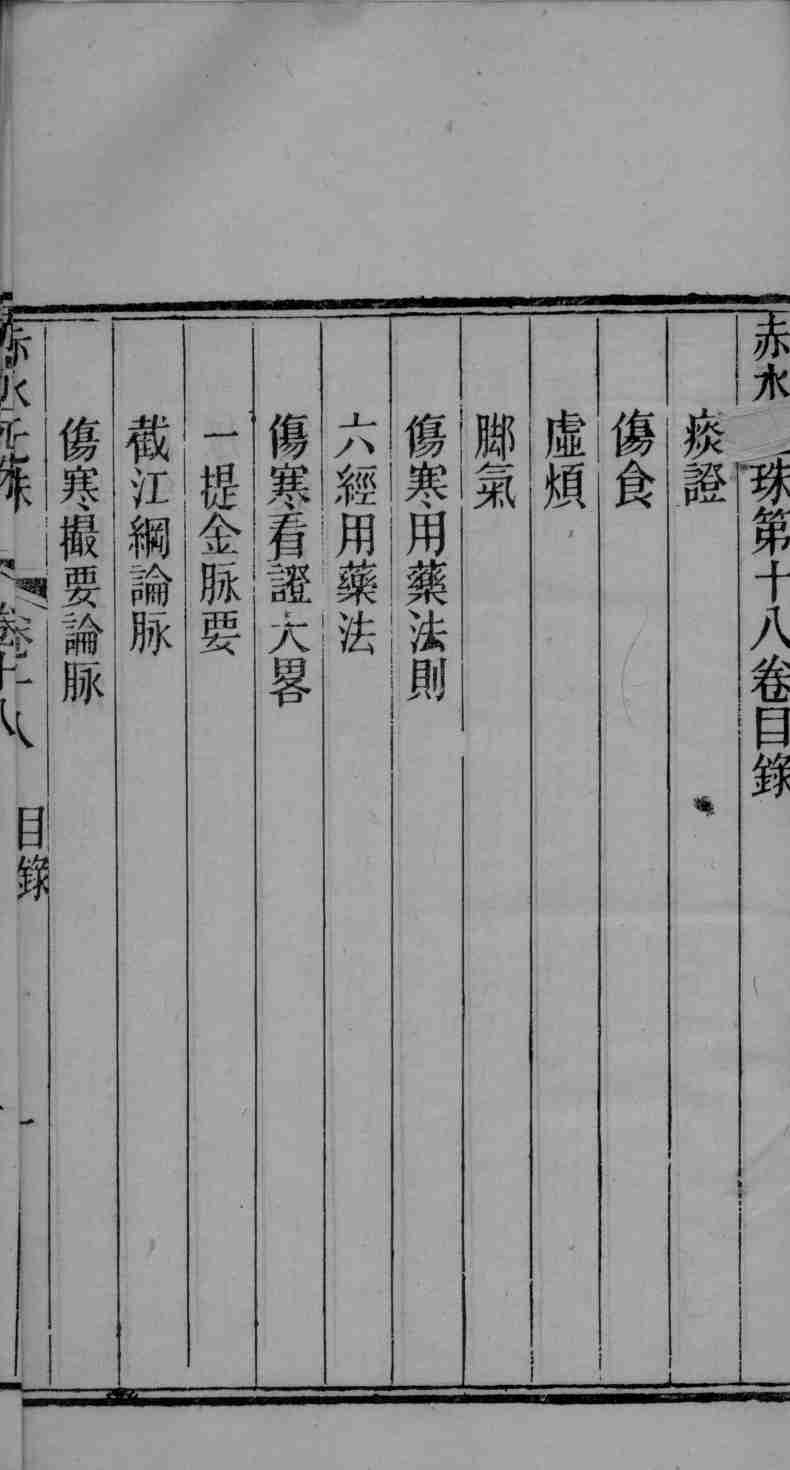 赤水珠第十八卷目錄
痰證
傷食
虛煩
脚氣
傷寒用藥法則
六經用藥法
傷寒看證大畧
一提金脉要
截江綱論脉
傷寒撮要論脉
卷十八
目錄
一